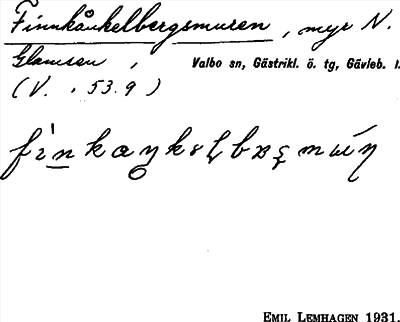 Finnkånkelbergsmuren, myr N.
Glamsen, Valbo sn, Gästrikl. ö. tg, Gävleb. l.
(V. . 53.9)
EMIL LEMHAGEN 1931.